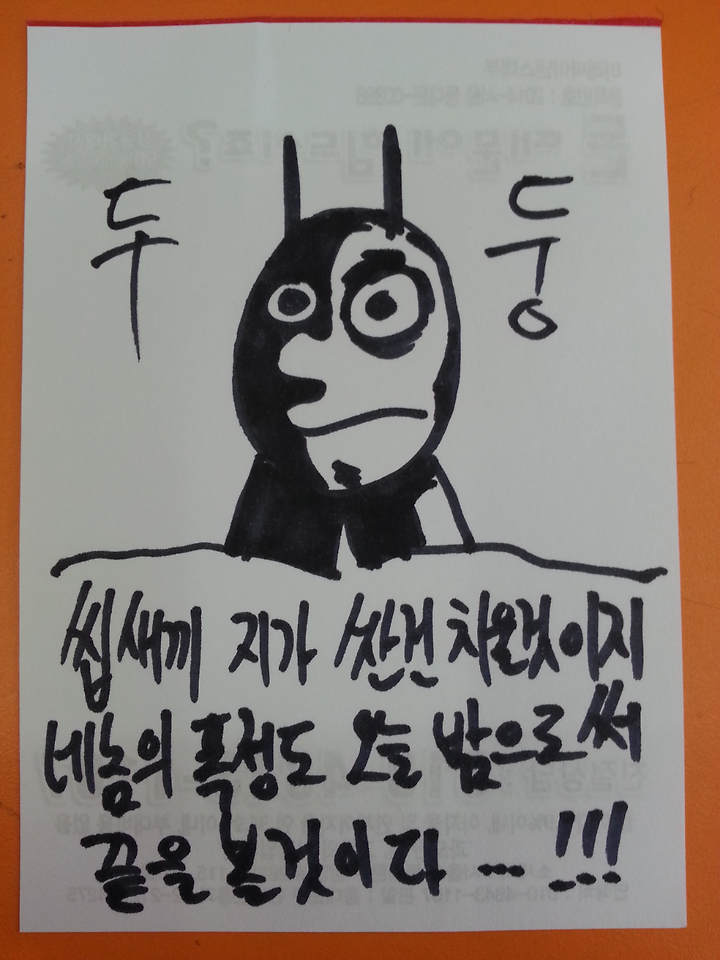 두 둥
씹새끼 지가 싼건 치울것이지
네놈의 폭정도 오늘 밤으로써
끝을 볼것이다 ... !!!